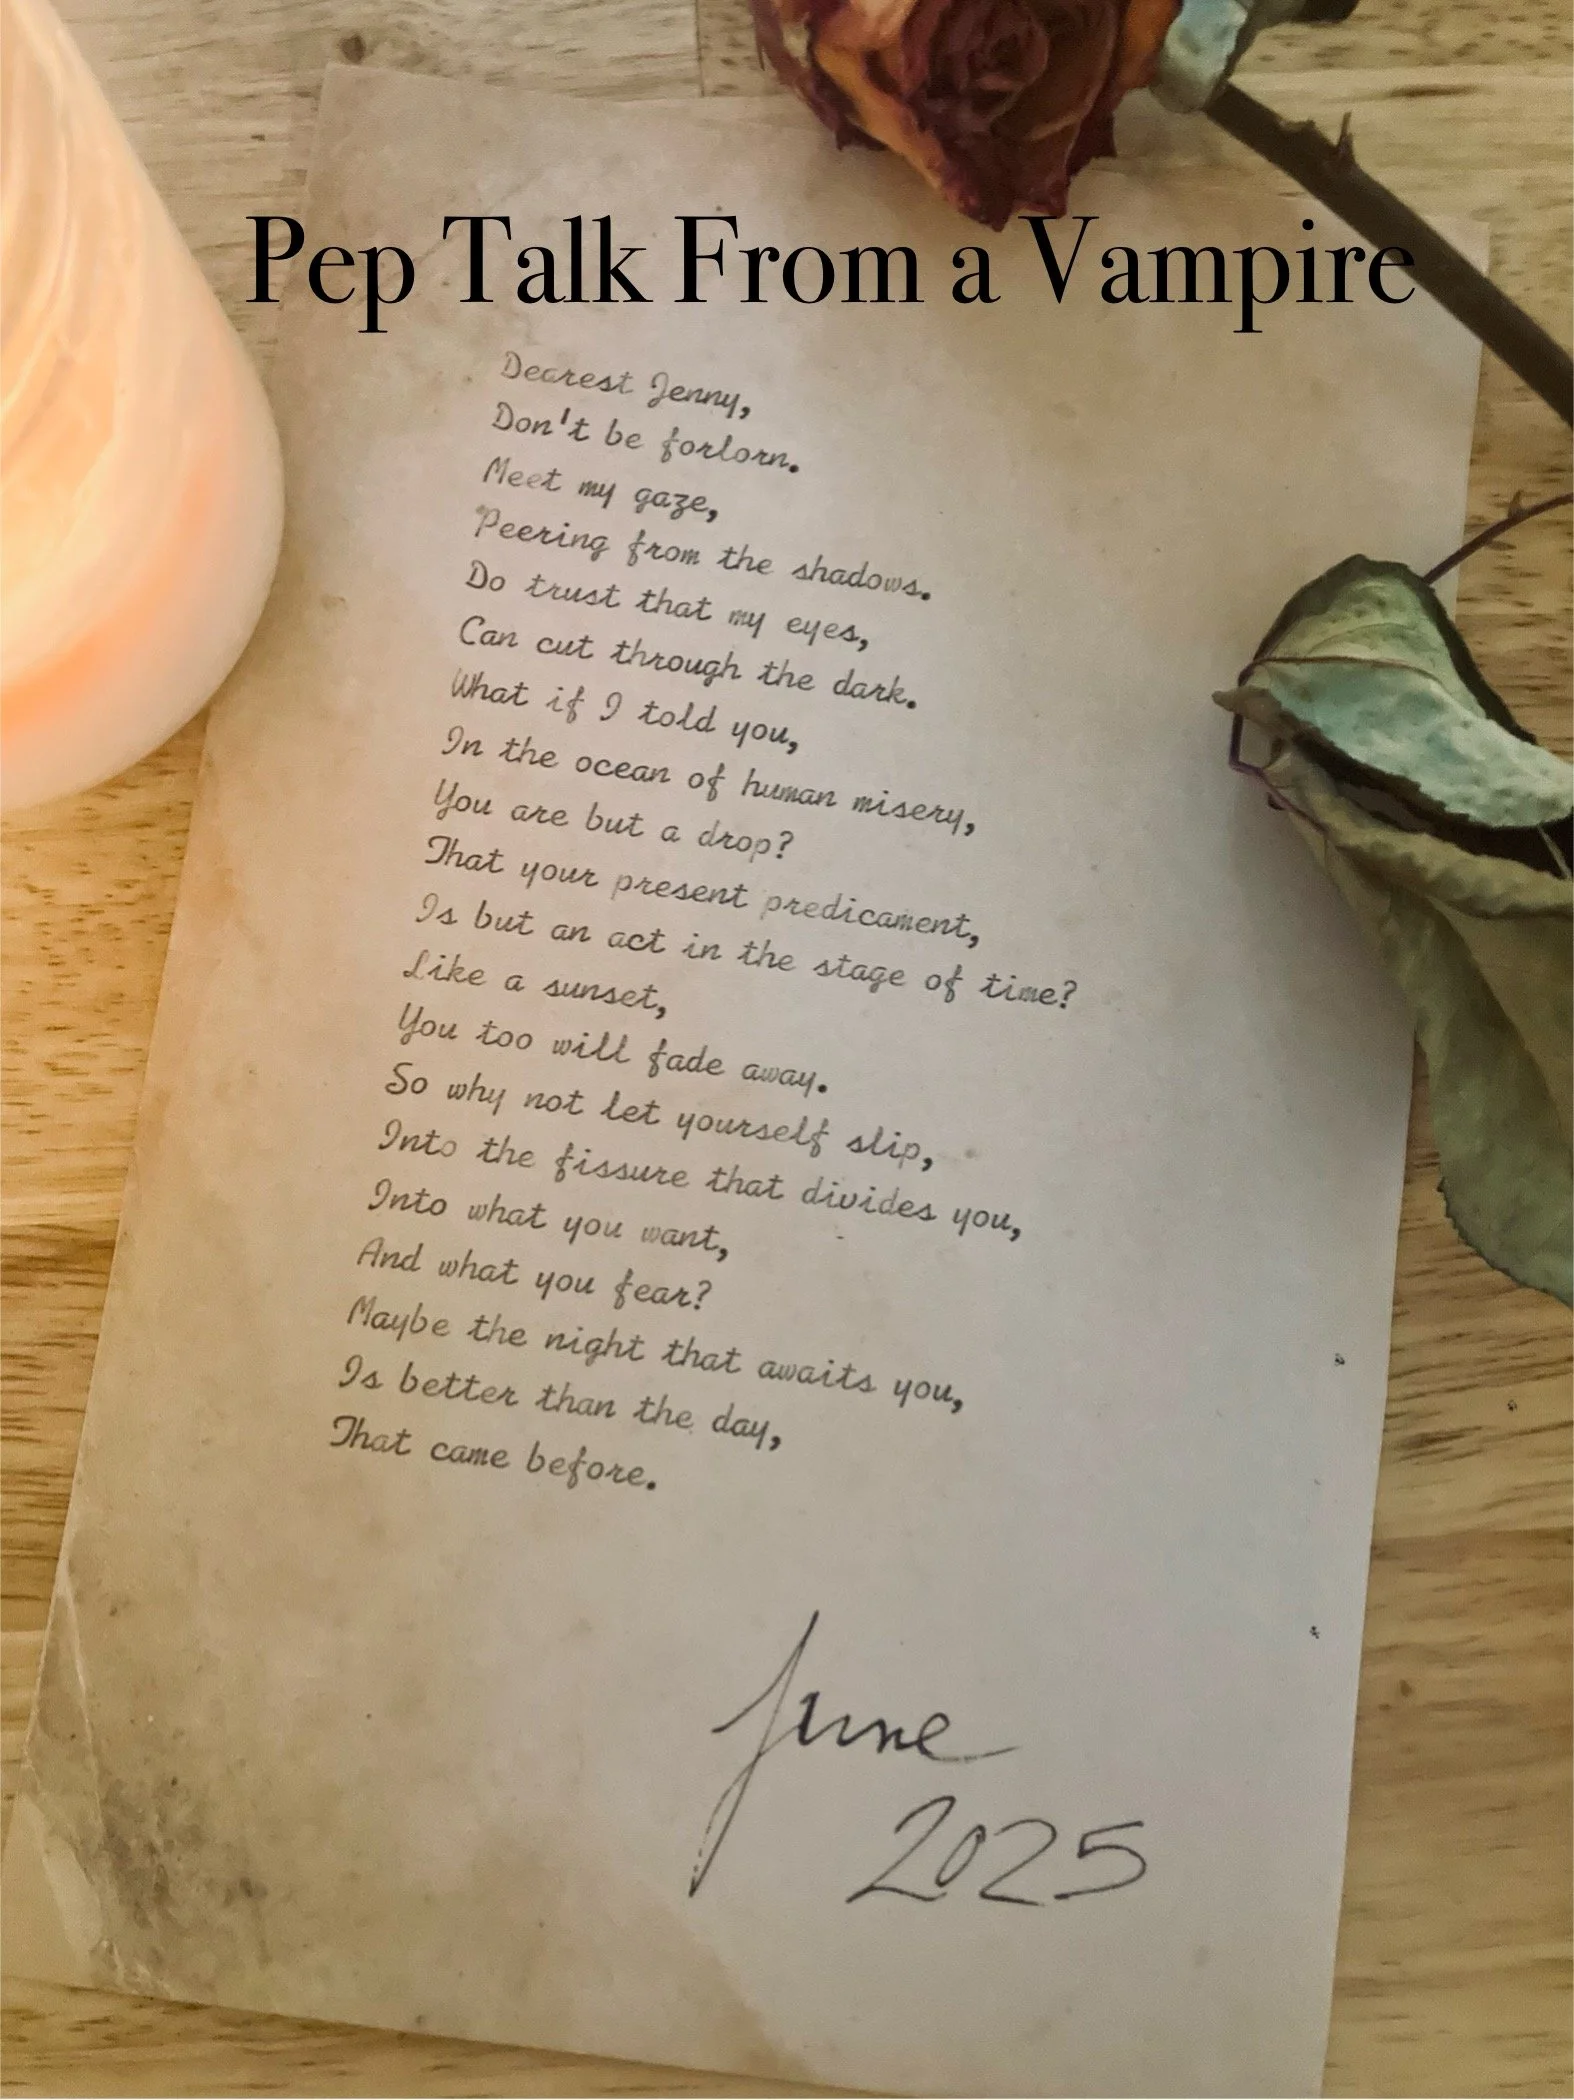 Pep Talk From a Vampire
Dearest Jenny,
Don't be forlorn.
Meet my gaze,
Peering from the shadows.
Do trust that my eyes,
Can cut through the dark.
What if I told you,
In the ocean of human misery,
You are but a drop?
That your present predicament,
Is but an act in the stage of time?
Like a sunset,
You too will fade away.
So why not let yourself slip,
Into the fissure that divides you,
Into what you want,
And what you fear?
Maybe the night that awaits you,
Is better than the day,
That came before.
June
2025